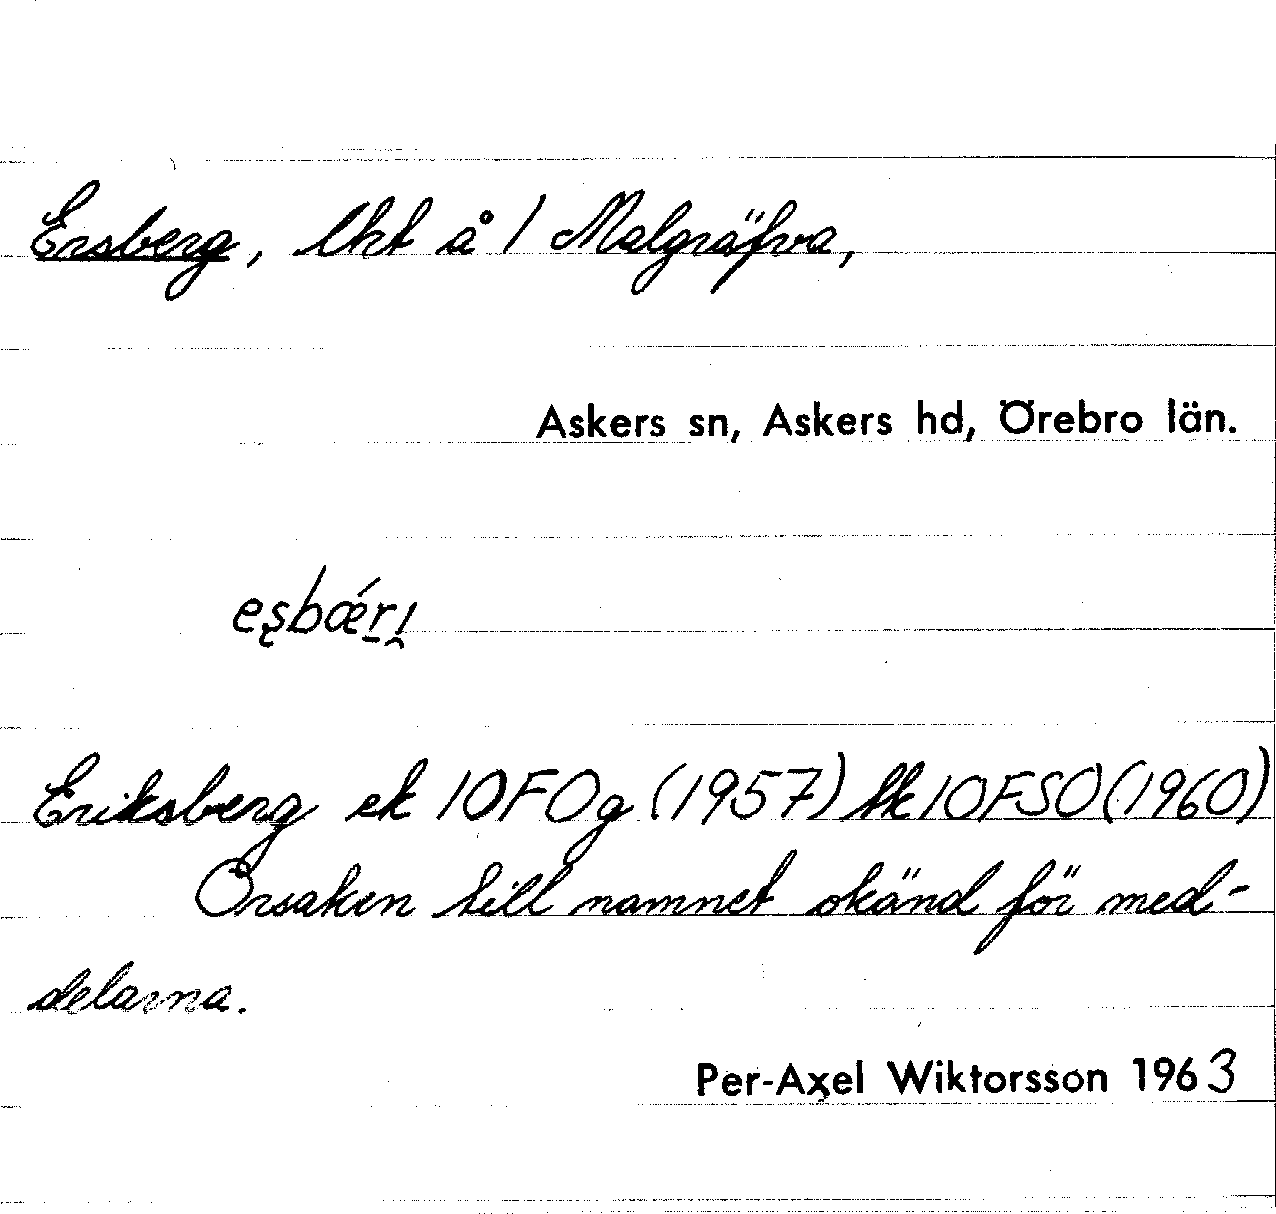 Ersberg, lht å 1 Malgräfva,
Askers sn, Askers hd, Örebro län.
Eriksberg ek 10FOg (1957) fk 10FSO (1960)
Orsaken till namnet okänd för med-
delarna.
Per-Axel Wiktorsson 1963